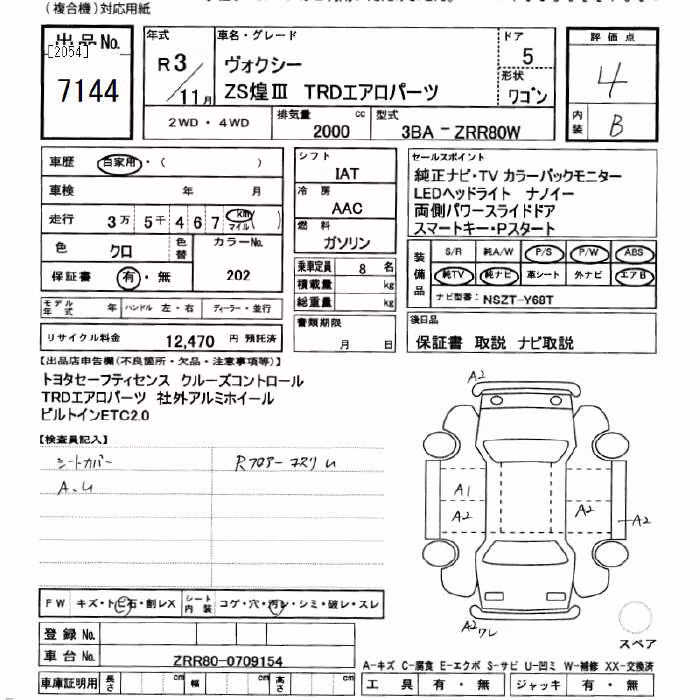 (複合機)対応用紙
出品No.
[2054]
7144
年式
R3/11月
車名・グレード
ヴォクシー
ZS煌Ⅲ TRDエアロパーツ
ドア
5
形状
ワゴン
2WD・4WD
排気量
2000 cc
型式
3BA-ZRR80W
評価点
4
内装
B
車歴 自家用・( )
車検 年 月
走行 3万5千467 km マイル ( )
色 クロ 色替 カラーNo. 202
保証書 有・無
モデル年式 年 ハンドル 左・右 ディーラー・並行
リサイクル料金 12,470 円 預託済
シフト
IAT
冷房
AAC
燃料
ガソリン
乗車定員 8 名
積載量 kg
総重量 kg
書類期限
月 日
セールスポイント
純正ナビ・TV カラーバックモニター
LEDヘッドライト ナノイー
両側パワースライドドア
スマートキー・Pスタート
装備品
S/R 純A/W P/S P/W ABS
純TV 純ナビ 革シート 外ナビ エアB
ナビ型番: NSZT-Y68T
後日品
保証書 取説 ナビ取説
【出品店申告欄(不良箇所・欠品・注意事項等)】
トヨタセーフティセンス クルーズコントロール
TRDエアロパーツ 社外アルミホイール
ビルトインETC2.0
【検査員記入】
シートカバー
A.U
RフロアーコスリU
A2
A1
A2
A2
A2
A2 ワレ
スペア
FW キズ・トビ石・割レX シート内装 コゲ・穴・汚レ・シミ・破レ・スレ
登録No.
車台No. ZRR80-0709154
車庫証明用 長さ cm 幅 cm 高さ cm
A-キズ C-腐食 E-エクボ S-サビ U-凹ミ W-補修 XX-交換済
工具 有・無 ジャッキ 有・無